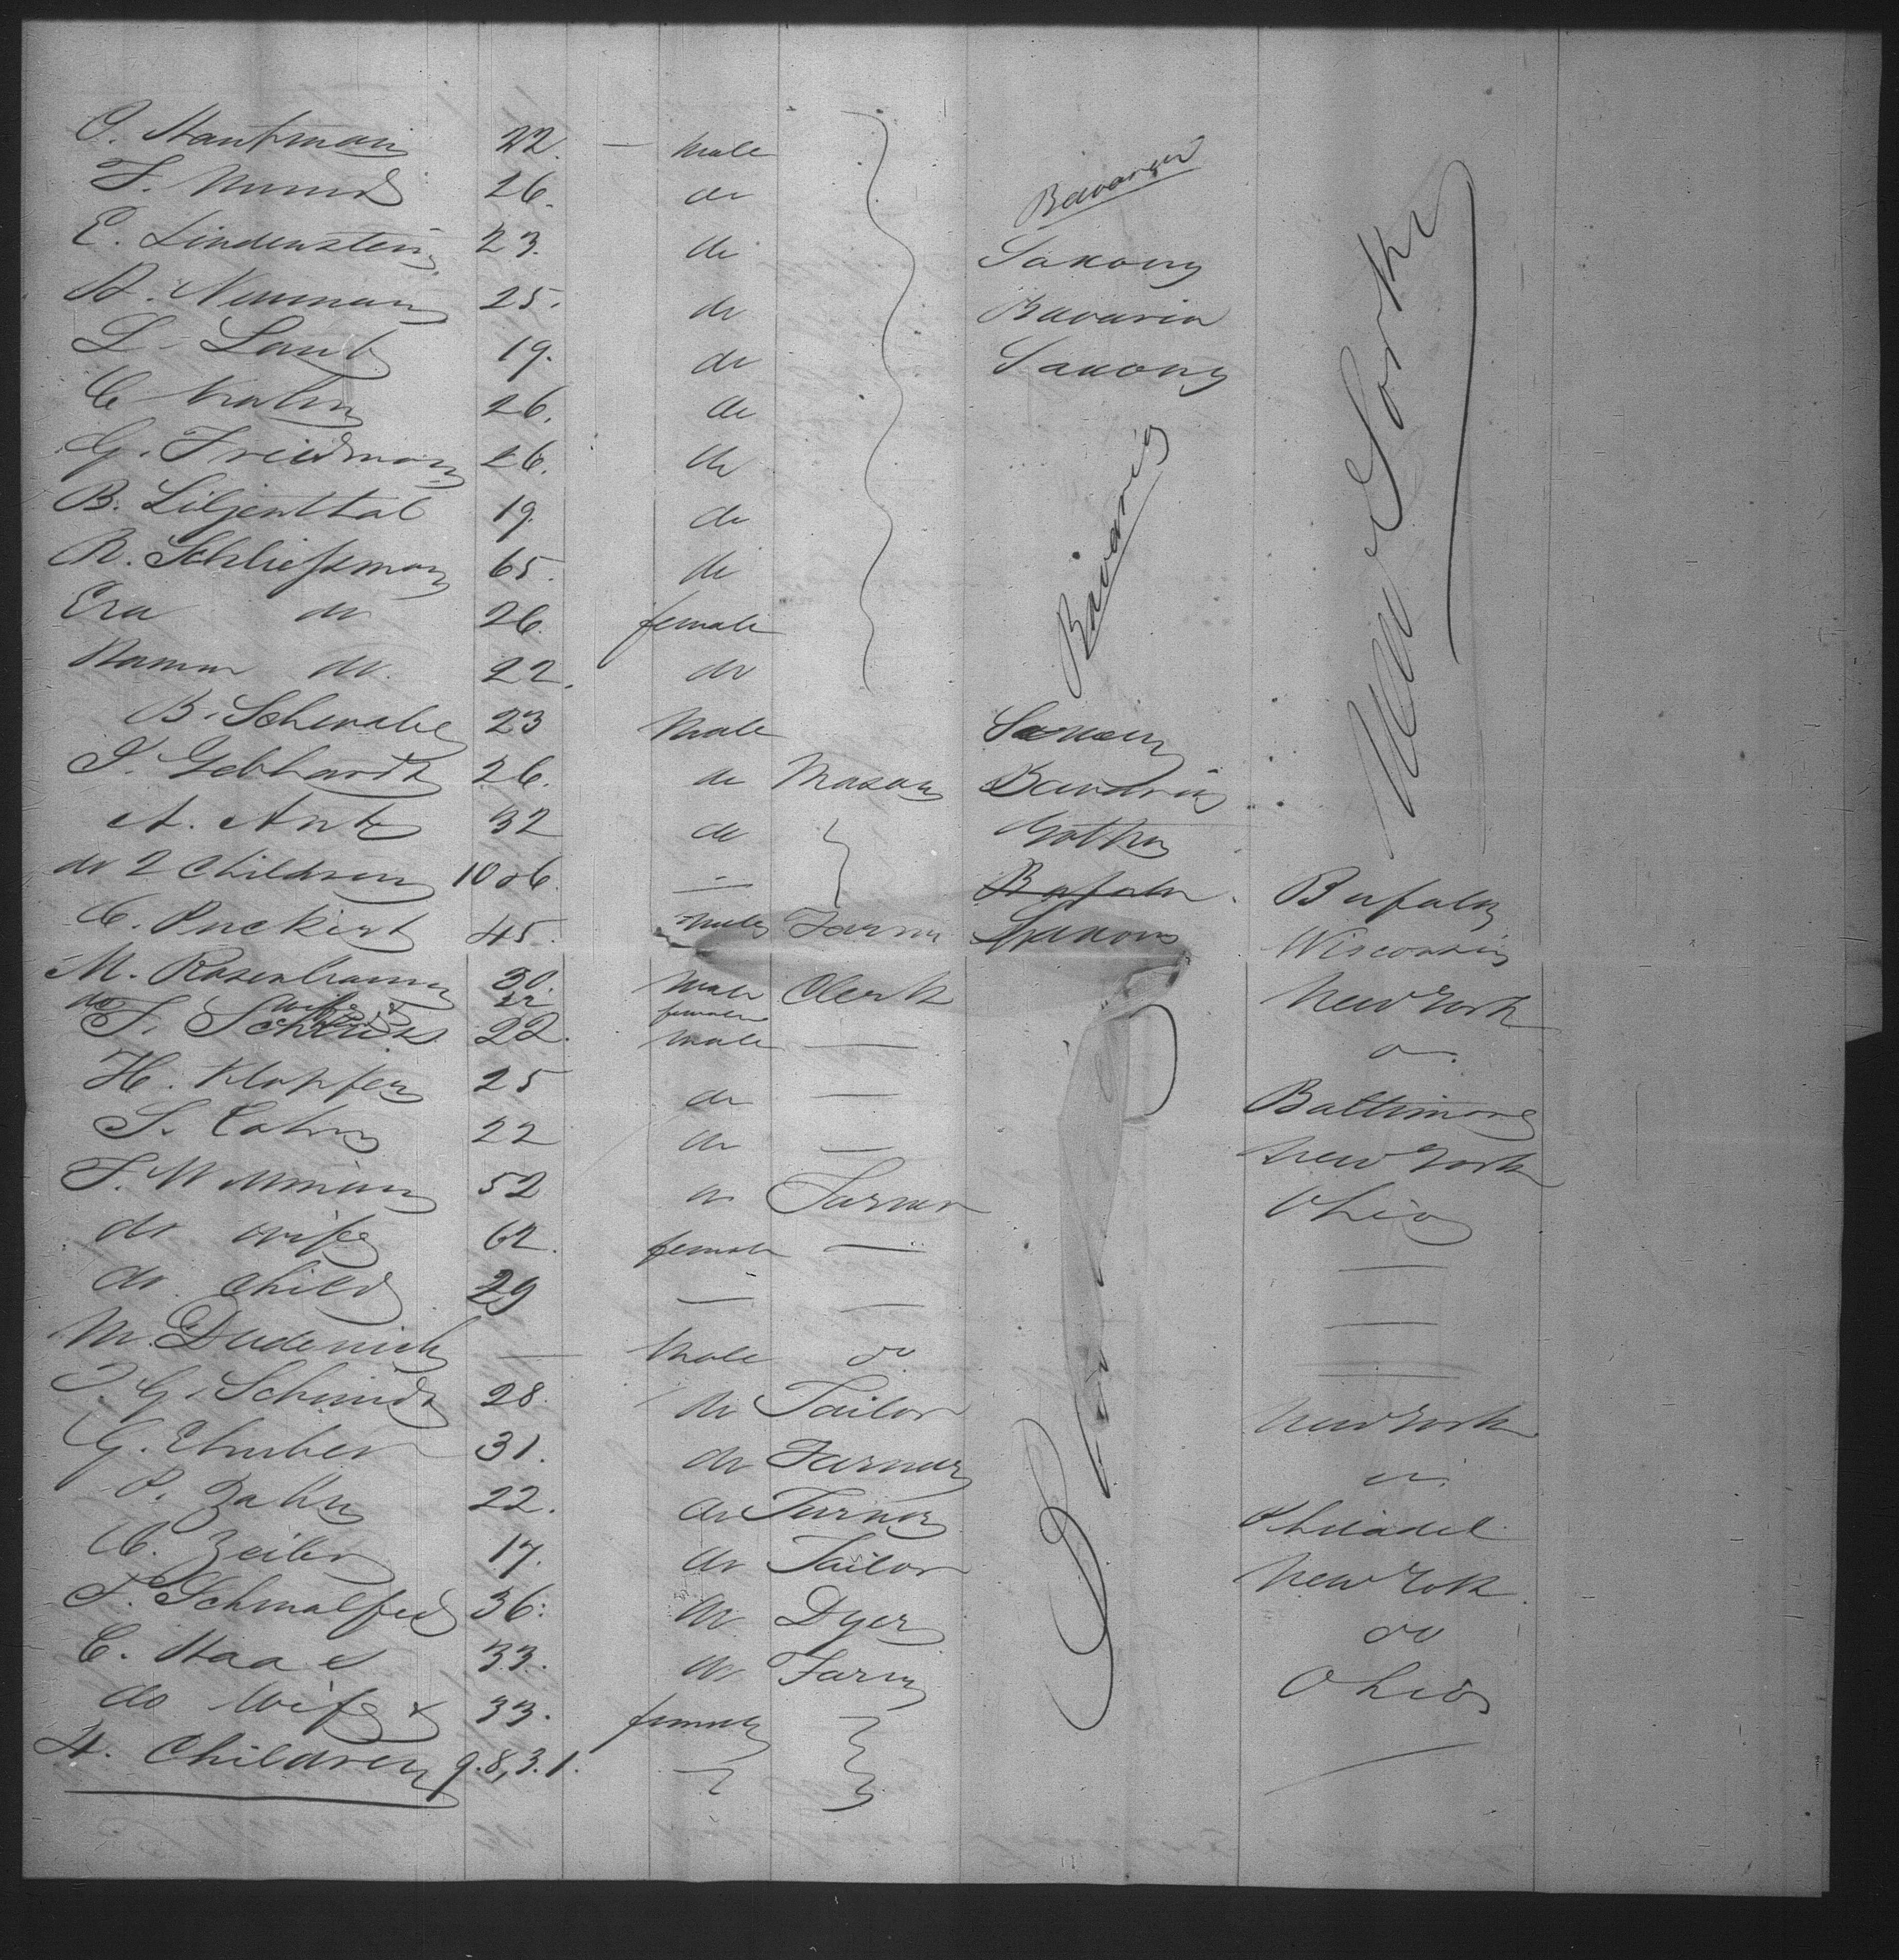 22. male
26. do Bavaria
E. Lindenstein 23. do Saxony
A. Neuman 25. do Bavaria
L. Laub 19. do Saxony
C Krahn 26. do
G. Friedman 26. do
B. Liljenthal 19. do Bavaria New York
R. Schließman 65. do
Eva do 26. female
do. 22. do
B. Schwabe 23 Male Saxony
J. Gebhardt 26. do Mason Bavaria
A. 32 do Gotha
do 2 Children 10 & 6. — Bufalo. Bufalo
C. Puckert 45. male Farm Saxony Wisconsin
M. Rosenbaum 30. Male Clerk New York
do wife & 22 female
F. 22. Male — do.
H. Klopfer 25 do — Baltimore
S. Cahn 22 do — New York
52 do Farmer Ohio
do wife 62. female — —
do child 29 — — —
M. — Male do
J. G. Schmidt 28. do Tailor New York
G. 31. do Farmer do
P. Zahn 22. do Turner Philadel.
C. Zeiler 17. do Tailor New York.
F. Schmalfus 36. do Dyer do
C. Haas 33. do Farm Ohio
do Wife & 33. female
4. Children 9.8,3.1.